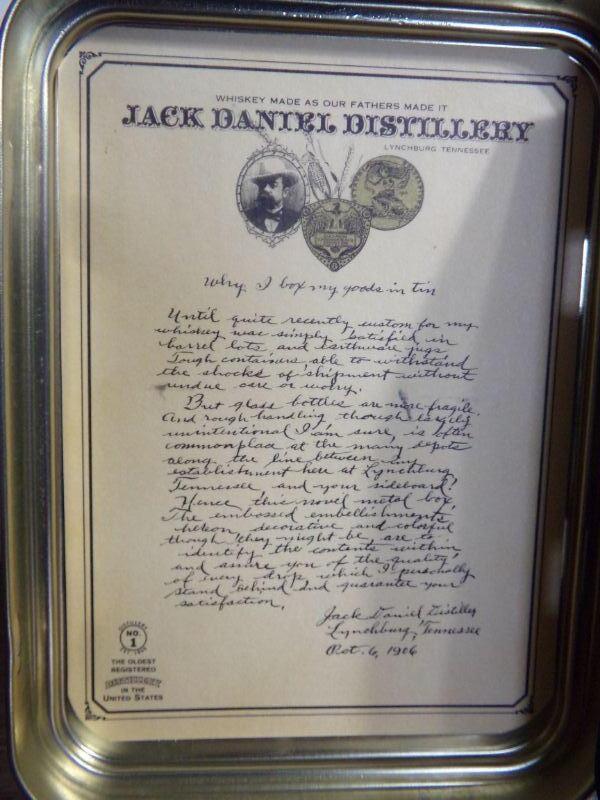 WHISKEY MADE AS OUR FATHERS MADE IT
JACK DANIEL DISTILLERY
LYNCHBURG TENNESSEE
Why I box my goods in tin
Until quite recently custom for my
whiskey was simply satisfied in
barrel lots and earthware jugs
Tough containers able to withstand
the shocks of shipment without
undue care or worry.
But glass bottles are more fragile.
And rough handling though largely
unintentional I am sure, is often
commonplace at the many depots
along the line between my
establishment here at Lynchburg
Tennessee and your sideboard!
Hence this novel metal box,
The embossed embellishments
hereon decorative and colorful
though they might be, are to
identify the contents within
and assure you of the quality
of every drop which I personally
stand behind and guarantee your
satisfaction.
Jack Daniel Distiller
Lynchburg, Tennessee
Oct. 6, 1906
DISTILLERY
NO.
1
EST. 1866
THE OLDEST
REGISTERED
DISTILLERY
IN THE
UNITED STATES